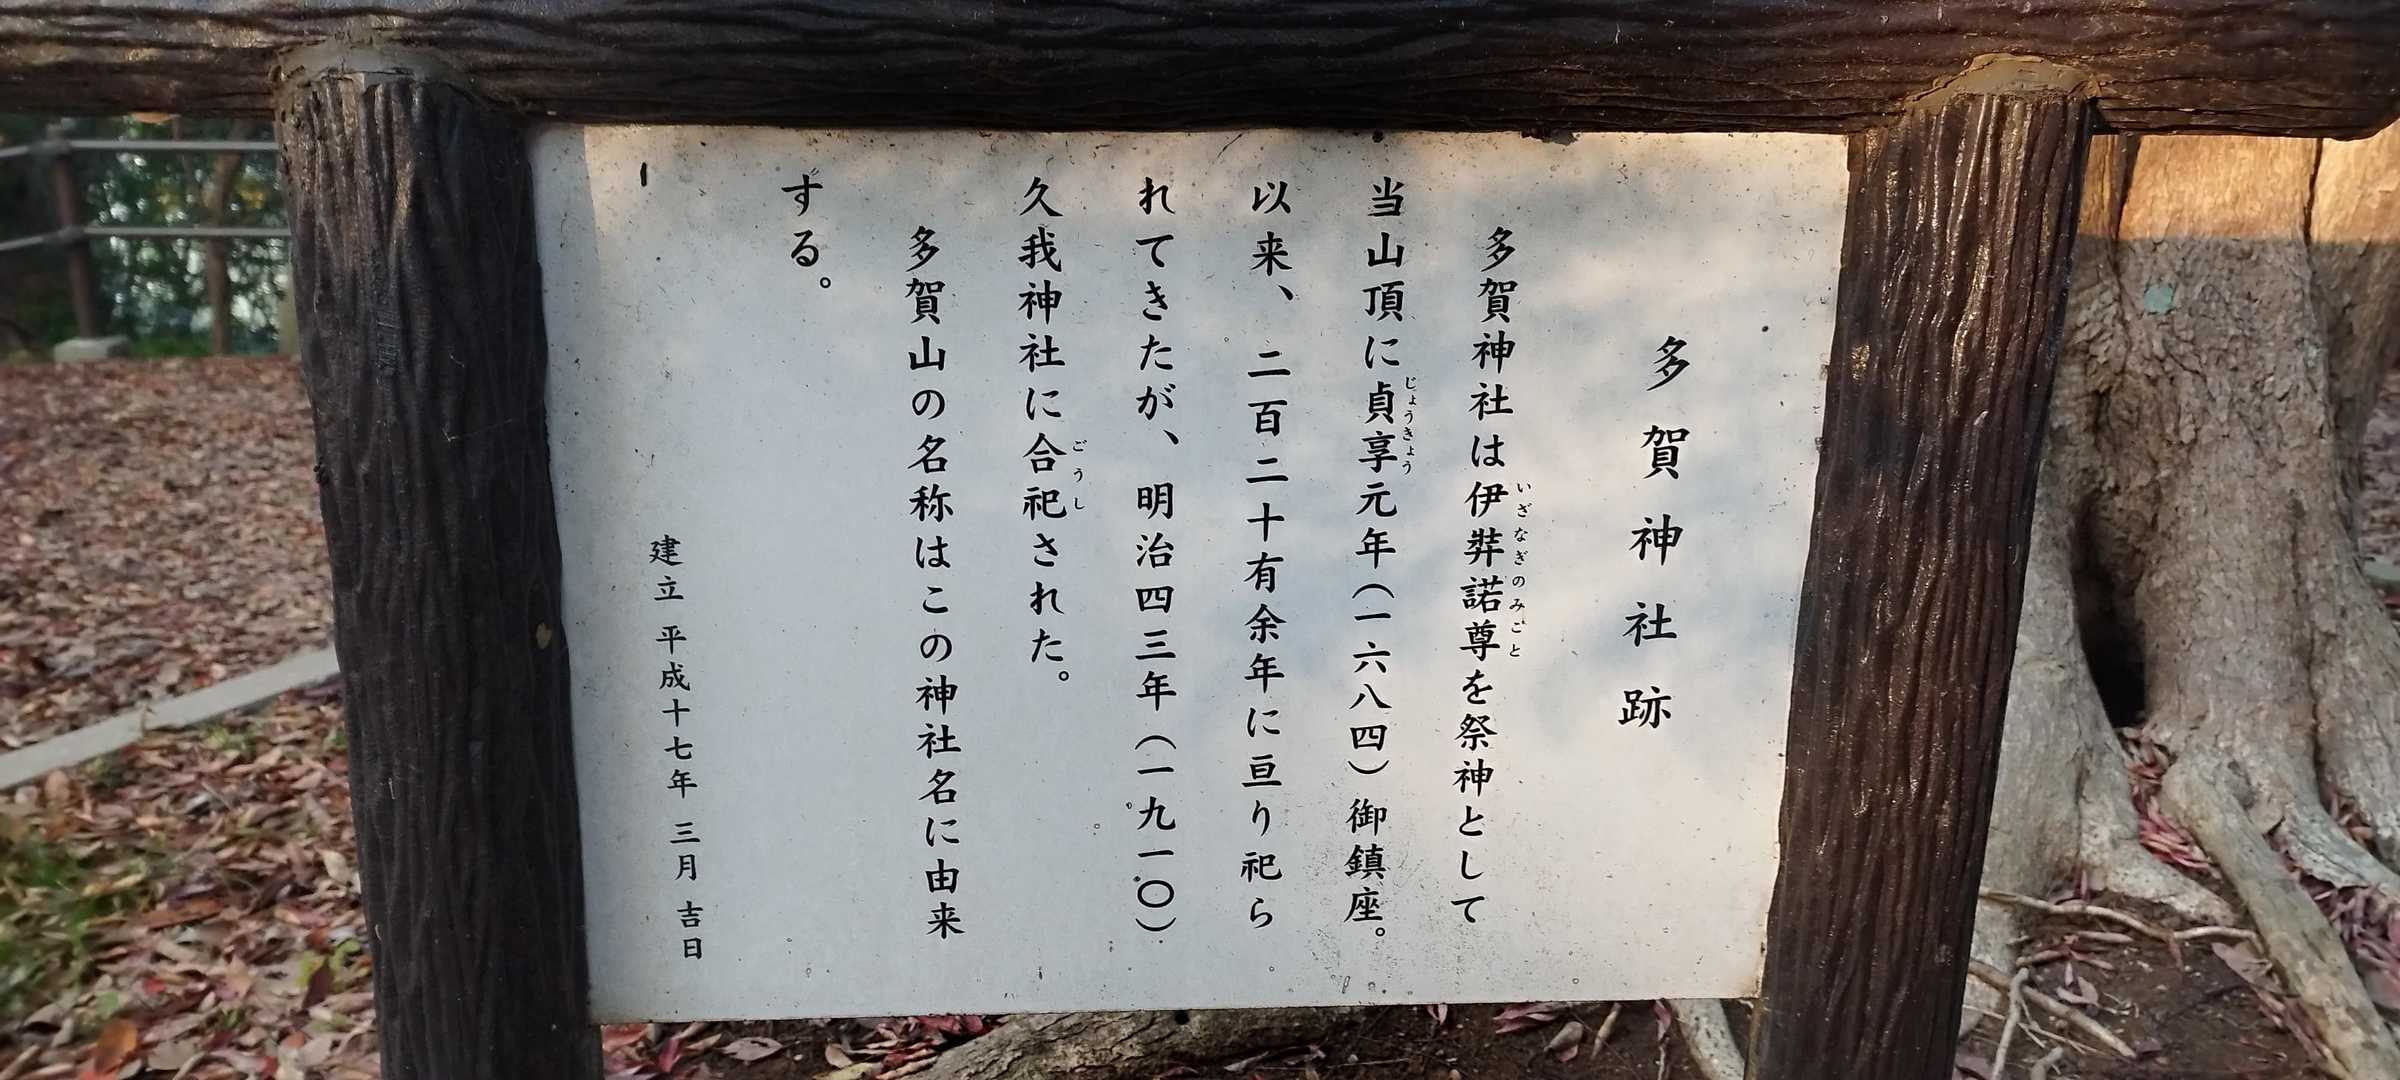 多賀神社跡
多賀神社は伊弉諾尊を祭神として
いざなぎのみごと
当山頂に貞享元年(一六八四)御鎮座。
じょうきょう
以来、二百二十有余年に亘り祀ら
れてきたが、明治四三年(一九一〇)
久我神社に合祀された。
ごうし
多賀山の名称はこの神社名に由来
する。
建立 平成十七年 三月 吉日